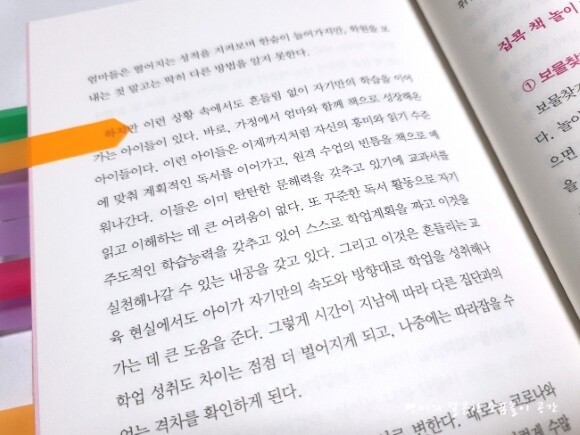 엄마들은 떨어지는 성적을 지켜보며 한숨이 늘어가지만, 학원을 보
내는 것 말고는 딱히 다른 방법을 알지 못한다.
하지만 이런 상황 속에서도 흔들림 없이 자기만의 학습을 이어
가는 아이들이 있다. 바로, 가정에서 엄마와 함께 책으로 성장해온
아이들이다. 이런 아이들은 이제까지처럼 자신의 흥미와 읽기 수준
에 맞춰 계획적인 독서를 이어가고, 원격 수업의 빈틈을 책으로 메
워나간다. 이들은 이미 탄탄한 문해력을 갖추고 있기에 교과서를
읽고 이해하는 데 큰 어려움이 없다. 또 꾸준한 독서 활동으로 자기
주도적인 학습능력을 갖추고 있어 스스로 학업계획을 짜고 이것을
실천해나갈 수 있는 내공을 갖고 있다. 그리고 이것은 흔들리는 교
육 현실에서도 아이가 자기만의 속도와 방향대로 학업을 성취해나
가는 데 큰 도움을 준다. 그렇게 시간이 지남에 따라 다른 집단과의
학업 성취도 차이는 점점 더 벌어지게 되고, 나중에는 따라잡을 수
없는 격차를 확인하게 된다.
변한다. 때로는 코로나와
집콕 책 놀이
① 보물찾
보물찾기
다. 놀이
으면
을